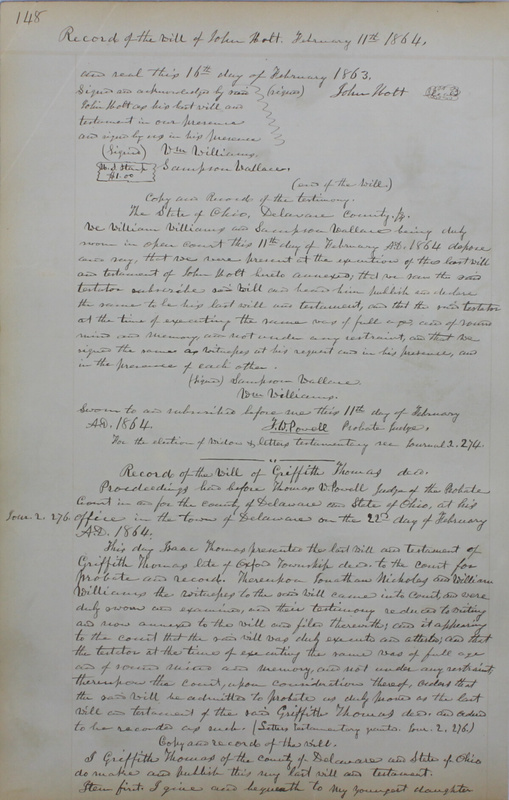 148
Record of the Will of John Hott. February 11th 1864.
and seal this 16th day of February 1863.
Signed and acknowledged by said (signed) John Hott
John Hott as his last will and
testament in our presence
and signed by us in his presence
(Signed) Wm Williams.
U.S. Stamp $1.00
Sampson Wallace.
(end of the Will.)
Copy and Record of the testimony.
The State of Ohio, Delaware County, ss.
We William Williams and Sampson Wallace being duly
sworn in open Court this 11th day of February A.D. 1864 depose
and say, that we were present at the execution of the last will
and testament of John Hott hereto annexed; that we saw the said
testator subscribe said Will and heard him publish and declare
the same to be his last will and testament, and that the said testator
at the time of executing the same was of full age and of sound
mind and memory and not under any restraint, and that we
signed the same as witnesses at his request and in his presence, and
in the presence of each other.
(Signed) Sampson Wallace
Wm Williams.
Sworn to and subscribed before me this 11th day of February
A.D. 1864. T.W. Powell Probate Judge.
For the election of Widow & letters testamentary see Journal 2. 274
Record of the Will of Griffith Thomas decd.
Proceedings had before Thomas W. Powell Judge of the Probate
Court in and for the county of Delaware and State of Ohio, at his
Jour. 2. 276. office in the town of Delaware on the 22d day of February
A.D. 1864.
This day Isaac Thomas presented the last will and testament of
Griffith Thomas late of Oxford Township decd. to the court for
probate and record. Thereupon Jonathan Nicholes and William
Williams the witnesses to the said will came into Court, and were
duly sworn and examined, and their testimony reduced to writing
and now annexed to the will and filed therewith; and it appearing
to the court that the said will was duly executed and attested; and that
the testator at the time of executing the same was of full age
and of sound mind and memory, and not under any restraint,
thereupon the court, upon consideration thereof, orders that
the said will be admitted to probate as duly proved as the last
will and testament of the said Griffith Thomas decd. and ordered
to be recorded as such. (Letters testamentary granted. Jour. 2. 276)
Copy and record of the will.
I Griffith Thomas of the county of Delaware and State of Ohio
do make and publish this my last will and testament.
Item first. I give and bequeath to my youngest daughter